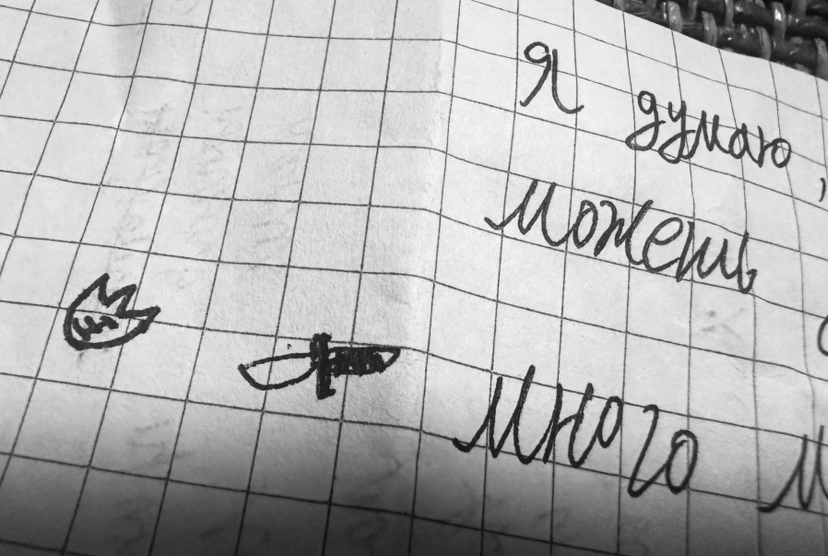 Я думаю,
можешь
много